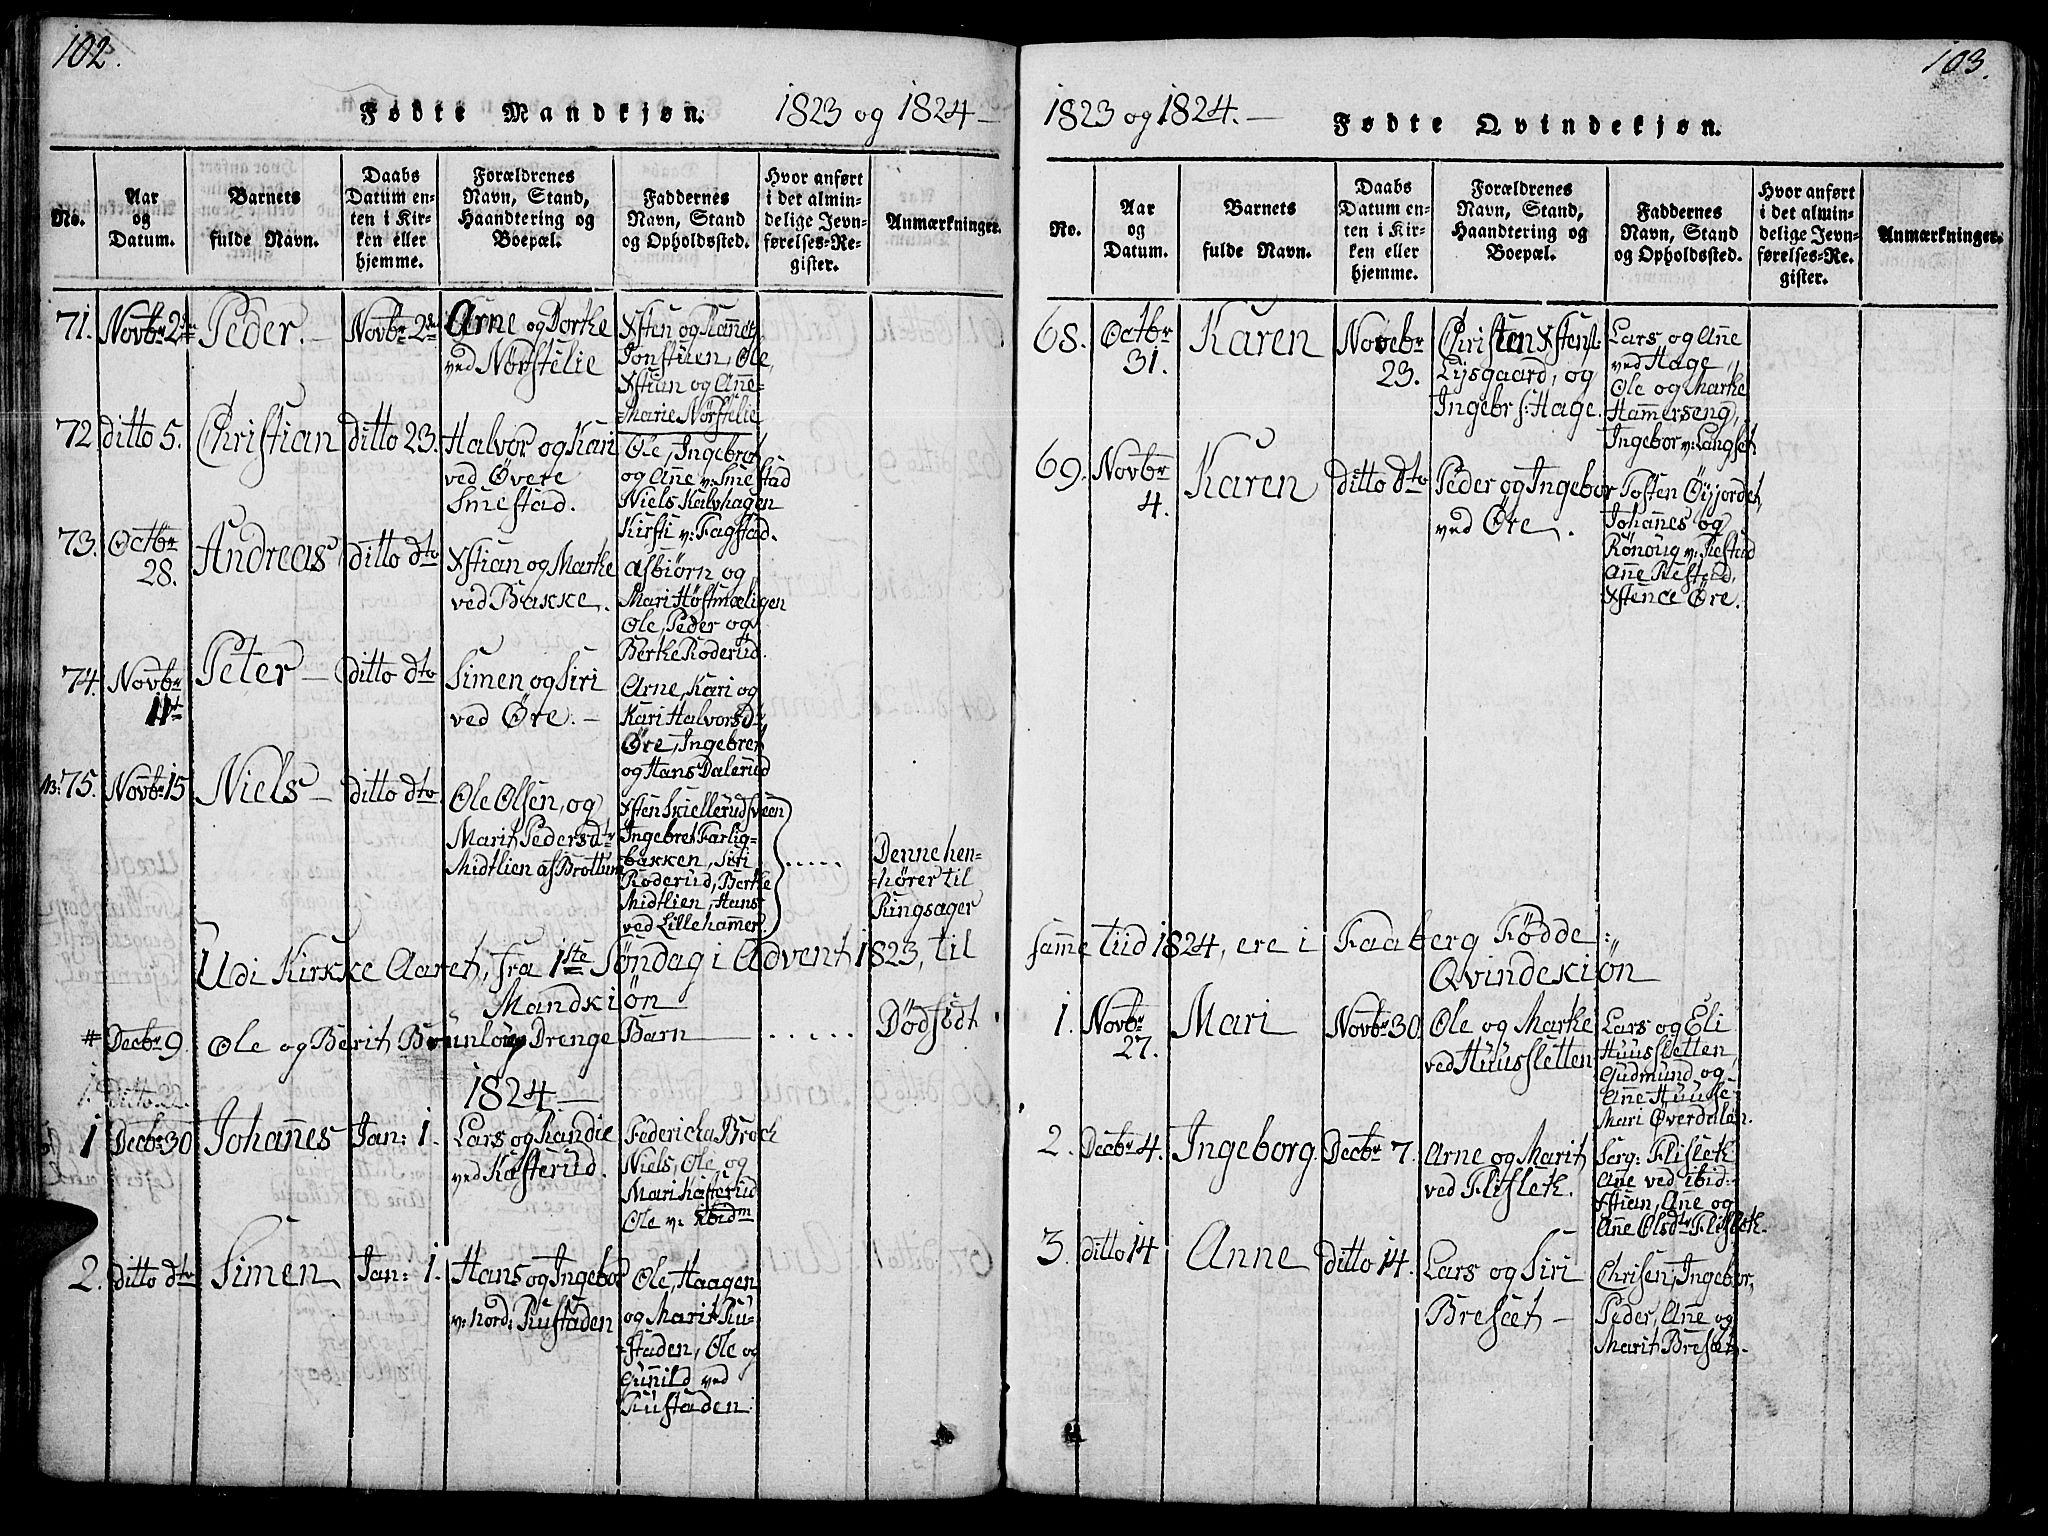 102.
Fødte Mandkjøn. 1823 og 1824 —
No.
Aar
og
Datum.
Barnets
fulde Navn.
Daabs
Datum en-
ten i Kir-
ken eller
hjemme.
Forældrenes
Navn, Stand,
Haandtering og
Boepæl.
Faddernes
Navn, Stand
og Opholdssted.
Hvor anført
i det almin-
delige Jevn-
førelses-Re-
gister.
Anmærkninger.
71. Novbr 2den Peder. — Novbr 2den
Arne og Dorthe
ved Nørstelie
Xsten og
Jonstuen, Ole,
Xstian og Anne-
-Marie Nørstelie
72 ditto 5. Christian ditto 23.
Halvor og Kari
ved Øvere
Smestad.
Ole, Ingebret
og Anne v: Smestad
Niels Kalvhagen
Kirsti v: Fagstad.
73. Octbr
28.
Andreas ditto dto
Xstian og Marthe
ved Bakke.
Asbiørn og
Mari Høstmæligen
Ole, Peder og
Berthe Roderud.
74. Novbr
11te
Peter — ditto dto
Simen og Siri
ved Øre. —
Arne, Kari og
Kari Halvorsdr
Øre, Ingebret
og Hans Dalerud
NB: 75. Novbr 15 Niels — ditto dto
Ole Olsen, og
Marit Pedersdtr
Midtlien af Brøttum
Xsten Skiellerudsveen
Ingebret Farlig-
-bakken, Siri
Roderud, Berthe
Midtlien, Hans
ved Lillehammer.
.....
Denne hen-
-hører til
Ringsager
Udi Kirke Aaret, fra 1ste Søndag i Advent 1823, til
Mandkiøn
# Decbr 9 Ole og Berit Brunlong Drenge Barn ..... Dødfødt
1824 —
1 Decbr 30 Johannes Jan: 1.
Lars og Randie
ved Kafferud.
Federicha Broch
Niels, Ole, og
Mari Kafferud
Ole v: ibidm
2. ditto dto Simen Jan: 1.
Hans og Ingebor
v: nord: Rustaden
Ole, Haagen
og Marit Ru-
-staden, Ole og
Gunild ved
Rustaden.
103.
1823 og 1824. — Fødte Qvindekjøn.
No.
Aar
og
Datum.
Barnets
fulde Navn.
Daabs
Datum en-
ten i Kir-
ken eller
hjemme.
Forældrenes
Navn, Stand,
Haandtering og
Boepæl.
Faddernes
Navn, Stand
og Opholdssted.
Hvor anført
i det almin-
delige Jevn-
førelses-Re-
gister.
Anmærkninger.
68. Octbr
31.
Karen
Novebr
23.
Christen Xstens:
Lysgaard, og
Ingebr s: Hage.
Lars og Anne
ved Hage,
Ole og Marthe
Hammerseng,
Ingebor v: Langset
69. Novbr
4.
Karen ditto dto
Peder og Ingebor
ved Øre.
Tosten Øyjordet,
Johannes og
Rønoug v: Restad
Anne Restad,
Xstence Øre.
samme tiid 1824, ere i Faaberg Fødde:
Qvindekiøn
1. Novbr
27.
Mari Novbr 30.
Ole og Marthe
ved Huusletten
Lars og Eli
Huusletten,
Gudmund og
Anne Huuske
Mari Øverdalen.
2. Decbr 4. Ingeborg Decbr 7.
Arne og Marit
ved Flisleth.
Serg: Flisleth
Ane ved ibid:
Xstian, Ane og
Ane Olsdtr Flisleth.
3. ditto 14 Anne ditto 14.
Lars og Siri
Breseet —
Chrisen, Ingebor,
Peder, Anne og
Marit Breseth.